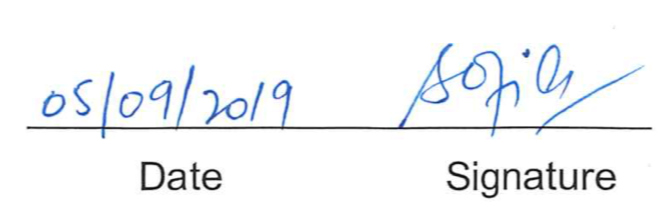 05/09/2019
Date Signature